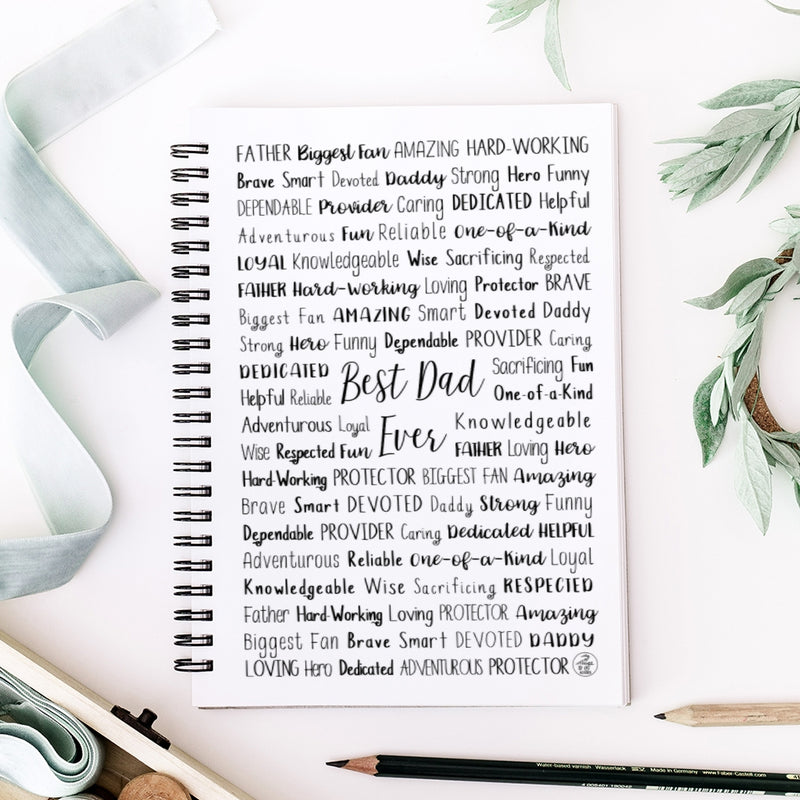 FATHER Biggest Fan AMAZING HARD-WORKING
Brave Smart Devoted Daddy Strong Hero Funny
DEPENDABLE Provider Caring DEDICATED Helpful
Adventurous Fun Reliable One-of-a-Kind
LOYAL Knowledgeable Wise Sacrificing Respected
FATHER Hard-Working Loving Protector BRAVE
Biggest Fan AMAZING Smart Devoted Daddy
Strong Hero Funny Dependable PROVIDER Caring
DEDICATED Best Dad Sacrificing Fun
Helpful Reliable One-of-a-Kind
Adventurous Loyal Ever Knowledgeable
Wise Respected Fun FATHER Loving Hero
Hard-Working PROTECTOR BIGGEST FAN Amazing
Brave Smart DEVOTED Daddy Strong Funny
Dependable PROVIDER Caring Dedicated HELPFUL
Adventurous Reliable One-of-a-Kind Loyal
Knowledgeable Wise Sacrificing RESPECTED
Father Hard-Working Loving PROTECTOR Amazing
Biggest Fan Brave Smart DEVOTED DADDY
LOVING Hero Dedicated ADVENTUROUS PROTECTOR
Water-based varnish Wasserlack Made in Germany www.Faber-Castell.com